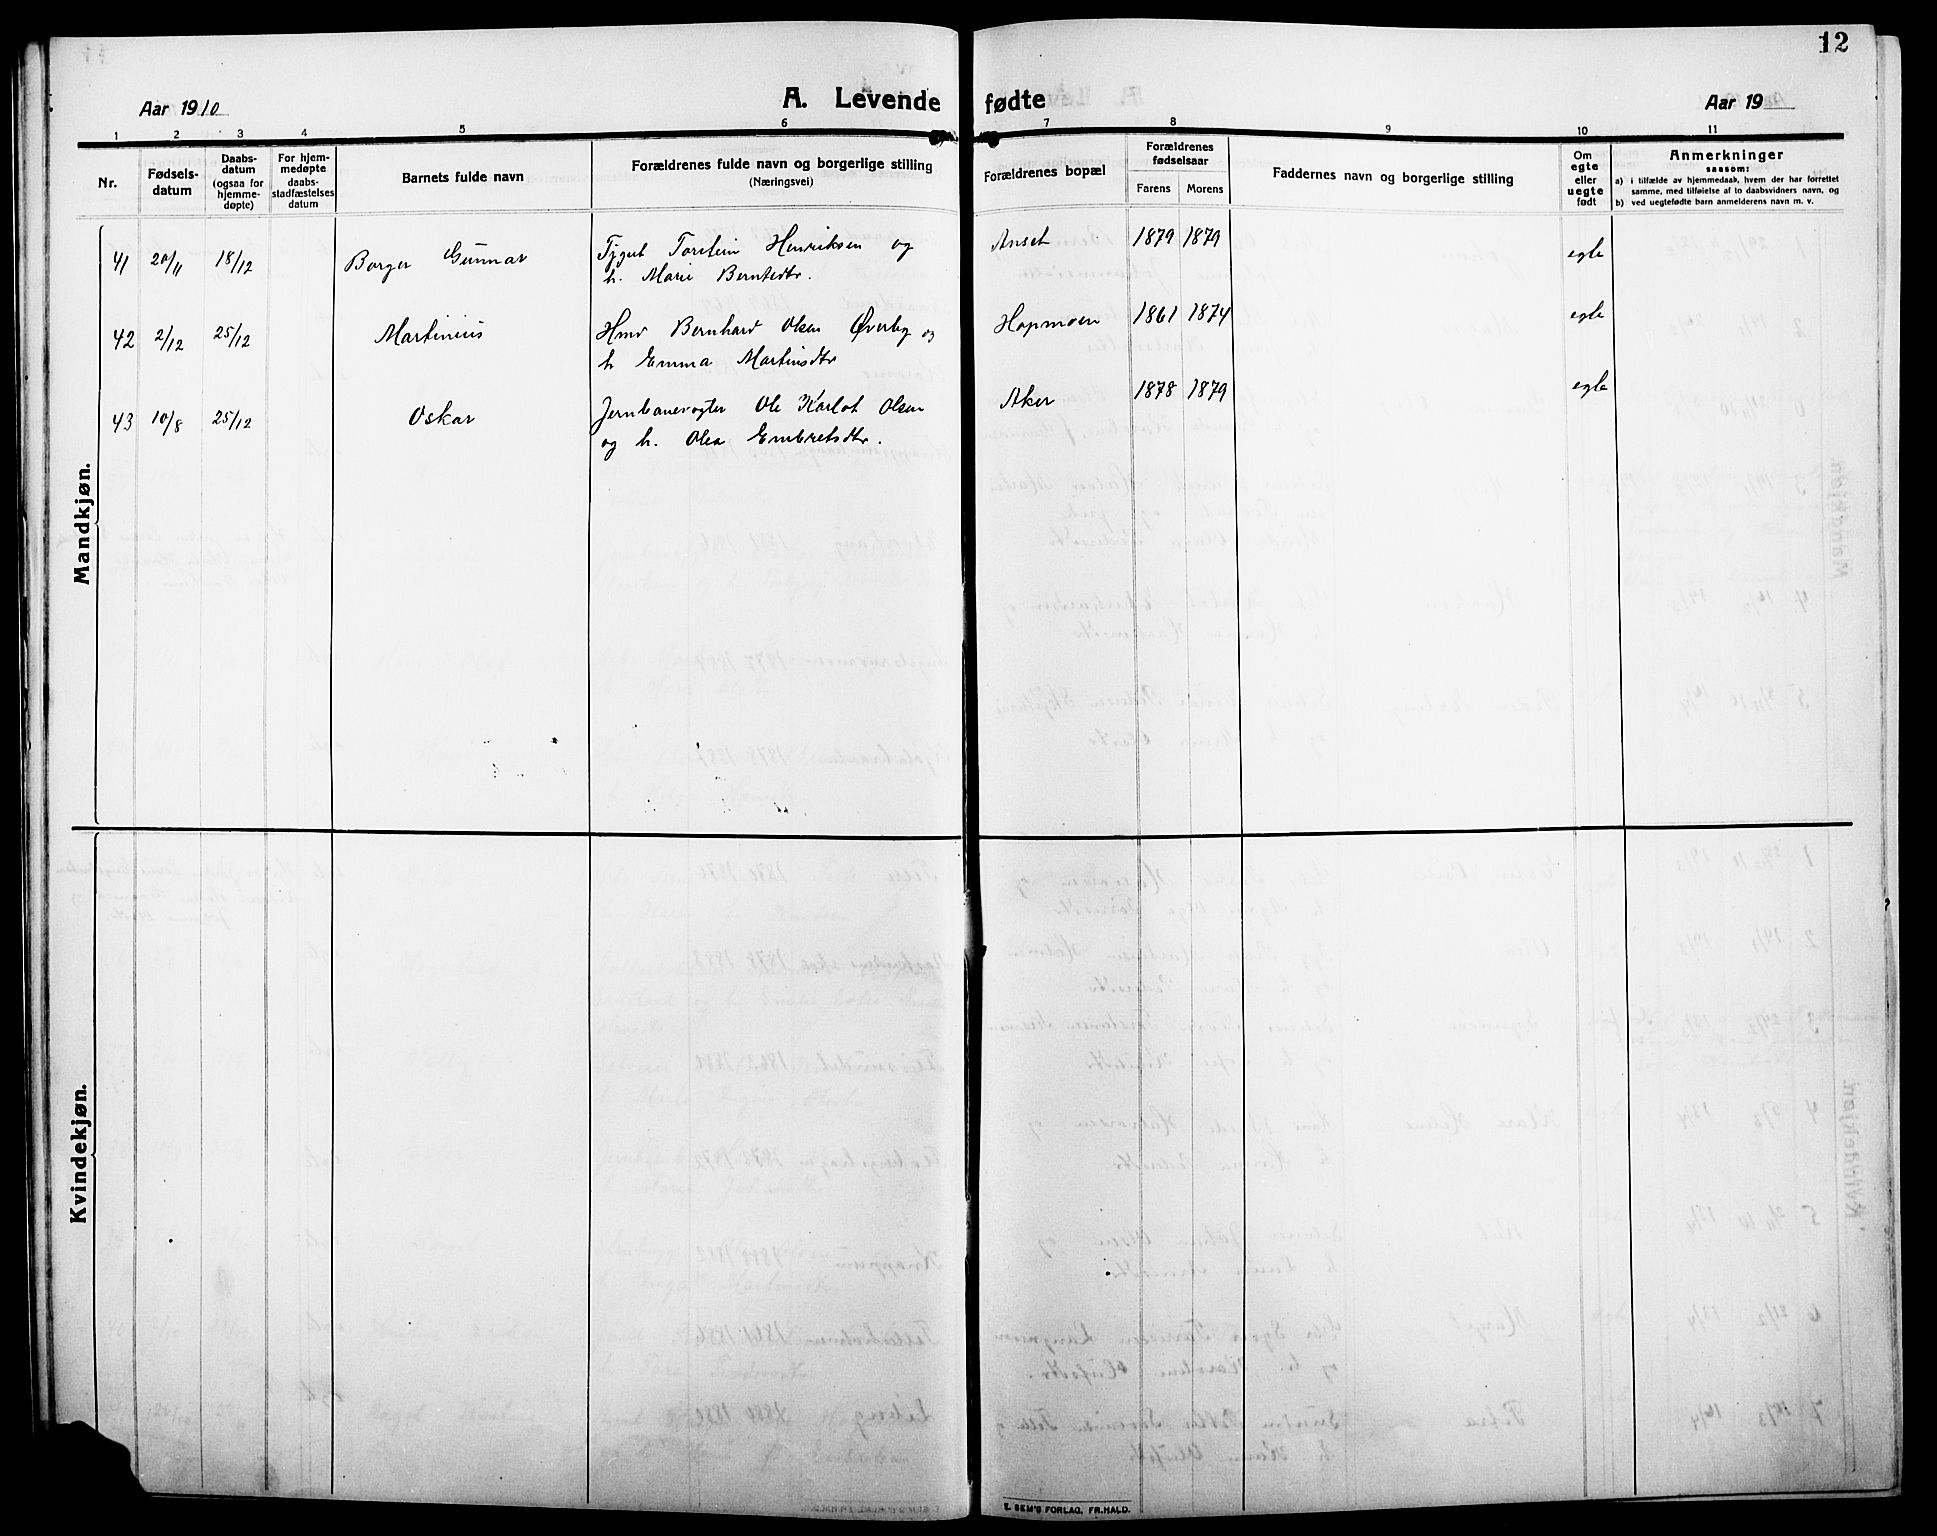 12
Aar 1910
A. Levende fødte
Aar 19
1 2 3 4 5 6 7 8 9 10 11
Nr.
Fødsels-
datum
Daabs-
datum
(ogsaa for
hjemme-
døpte)
For hjem-
medøpte
daabs-
stadfæstelses
datum
Barnets fulde navn
Forældrenes fulde navn og borgerlige stilling
(Næringsvei)
Forældrenes bopæl
Forældrenes
fødselsaar
Farens Morens
Faddernes navn og borgerlige stilling
Om
egte
eller
uegte
født
Anmerkninger
saasom:
a) i tilfælde av hjemmedaab, hvem der har forrettet
samme, med tilføielse af to daabsvidners navn, og
b) ved uegtefødte barn anmelderens navn m. v.
Mandkjøn.
41 20/11 18/12 Borger Gunnar Torstein Henriksen og Anset 1879 1879 egte
h. Marie Berntsdtr.
42 2/12 25/12 Martinius Hmd Bernhard Olsen Øverby og Hopmoen 1861 1874 egte
h. Emma Martinsdtr
43 10/8 25/12 Oskar Jernbanevogter Ole Karlot Olsen Aker 1878 1879 egte
og h. Olea Embretsdtr.
Kvindekjøn.
E. SEM'S FORLAG, FR.HALD.